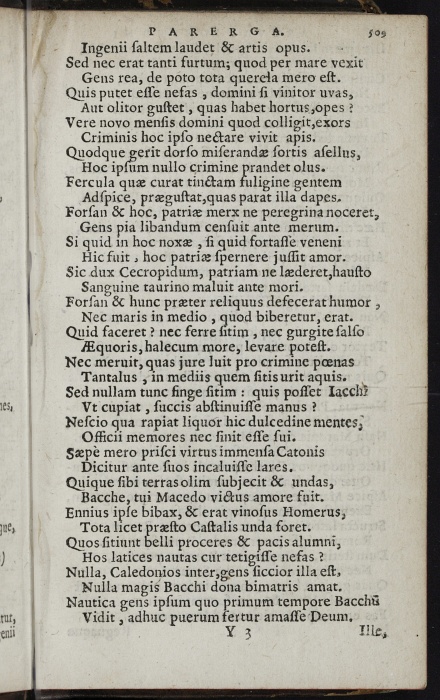 PARERGA. 509
Ingenii saltem laudet & artis opus.
Sed nec erat tanti furtum; quod per mare vexit
Gens rea, de poto tota querela mero est.
Quis putet esse nefas, domini si vinitor uvas,
Aut olitor gustet, quas habet hortus, opes?
Vere novo mensis domini quod colligit, exors
Criminis hoc ipso nectare vivit apis.
Quodque gerit dorso miserandæ sortis asellus,
Hoc ipsum nullo crimine prandet olus.
Fercula quæ curat tinctam fuligine gentem
Adspice, prægustat, quas parat illa dapes.
Forsan & hoc, patriæ merx ne peregrina noceret,
Gens pia libandum censuit ante merum.
Si quid in hoc noxæ, si quid fortasse veneni
Hic fuit, hoc patriæ spernere jussit amor.
Sic dux Cecropidum, patriam ne læderet, hausto
Sanguine taurino maluit ante mori.
Forsan & hunc præter reliquus defecerat humor,
Nec maris in medio, quod biberetur, erat.
Quid faceret? nec ferre sitim, nec gurgite salso
Æquoris, halecum more, levare potest.
Nec meruit, quas jure luit pro crimine pœnas
Tantalus, in mediis quem sitis urit aquis.
Sed nullam tunc finge sitim: quis posset Iacchi
Vt cupiat, succis abstinuisse manus?
Nescio qua rapiat liquor hic dulcedine mentes,
Officii memores nec sinit esse sui.
Sæpè mero prisci virtus immensa Catonis
Dicitur ante suos incaluisse lares.
Quique sibi terras olim subjecit & undas,
Bacche, tui Macedo victus amore fuit.
Ennius ipse bibax, & erat vinosus Homerus,
Tota licet præsto Castalis unda foret.
Quos sitiunt belli proceres & pacis alumni,
Hos latices nautas cur tetigisse nefas?
Nulla, Caledonios inter, gens siccior illa est,
Nulla magis Bacchi dona bimatris amat.
Nautica gens ipsum quo primum tempore Bacchū
Vidit, adhuc puerum fertur amasse Deum.
Y 3 Ille,